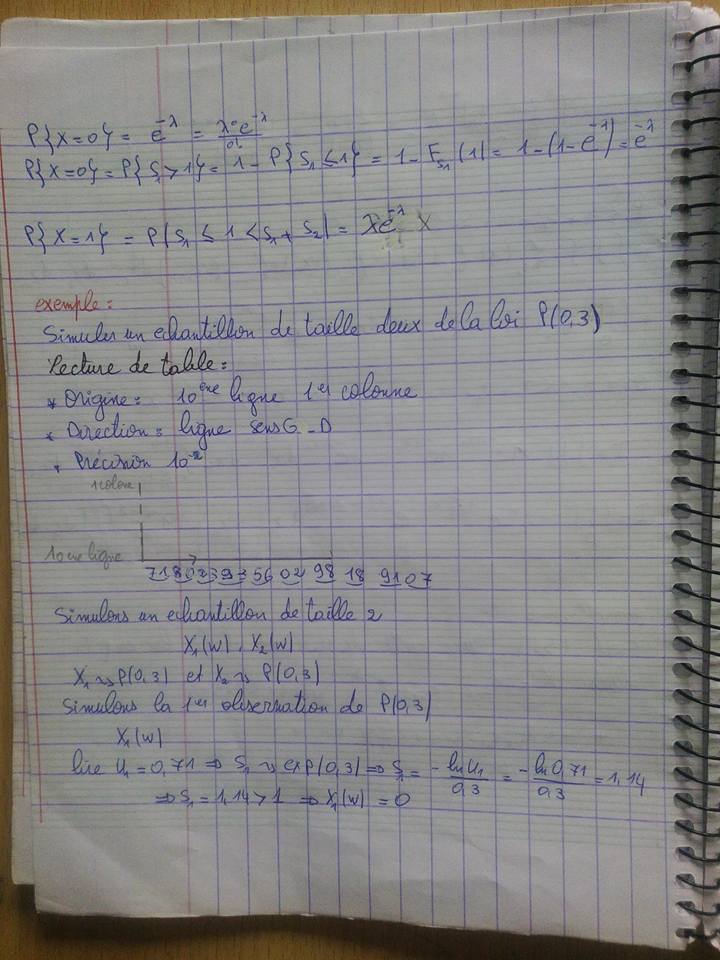 P{X=0} = e^{-λ} = λ⁰e^{-λ}/0!
P{X=0} = P{S₁>1} = 1 - P{S₁≤1} = 1 - F_{S₁}(1) = 1-(1-e^{-λ}) = e^{-λ}
P{X=1} = P(S₁ ≤ 1 < S₁+S₂) = λe^{-λ} X
exemple:
Simuler un echantillon de taille deux de la loi P(0,3)
Lecture de table:
* Origine: 10ème ligne 1er colonne
* Direction: ligne sens G-D
* Précision 10^{-2}
1colone
10eme ligne
71 80 23 93 56 02 98 18 91 07
Simulons un echantillon de taille 2
X₁(w), X₂(w)
X₁ ~> P(0,3) et X₂ ~> P(0,3)
Simulons la 1er observation de P(0,3)
X₁(w)
lire U₁ = 0,71 ⇒ S₁ ~> exp(0,3) ⇒ S₁ = -ln U₁/0,3 = -ln 0,71/0,3 = 1,14
⇒ S₁ = 1,14 > 1 ⇒ X₁(w) = 0